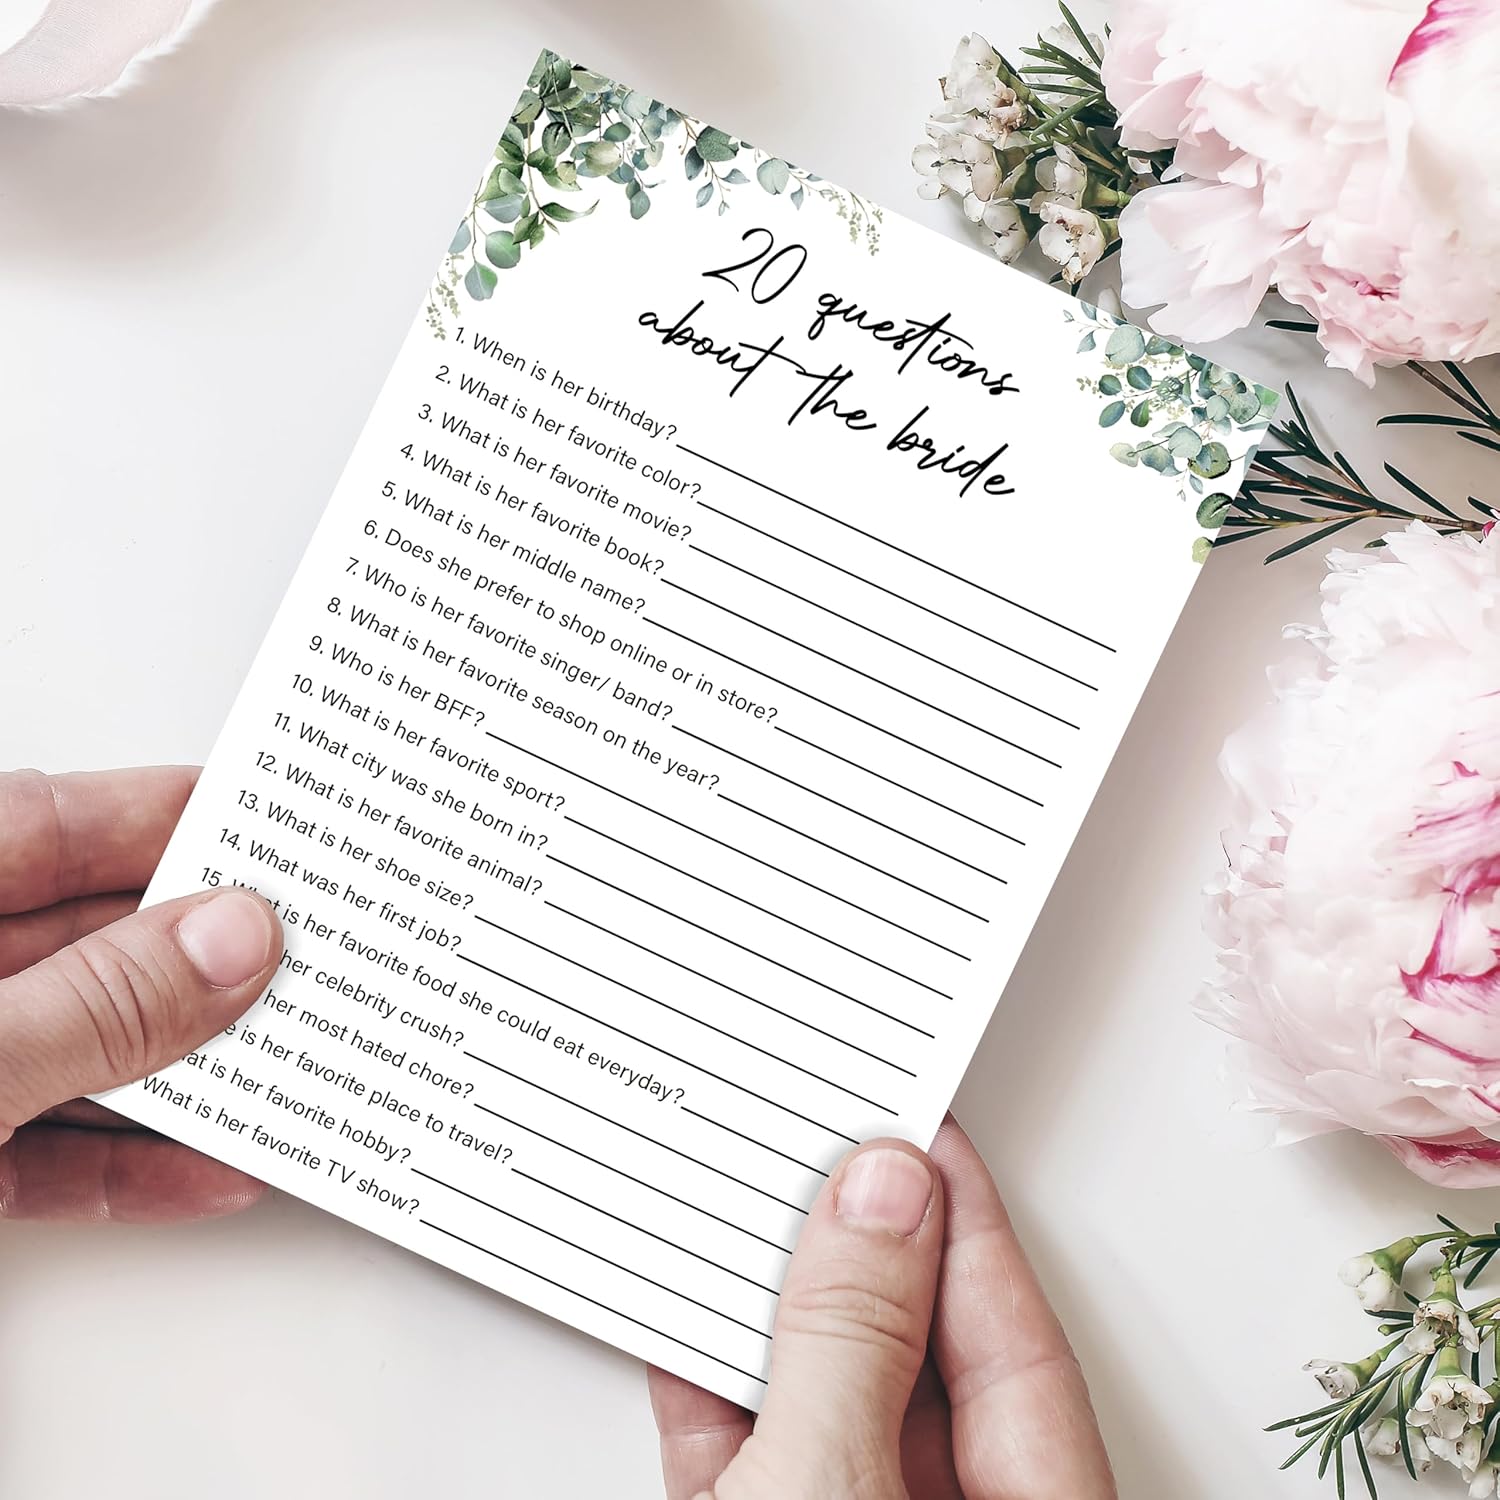 20 questions
about the bride
1. When is her birthday?
2. What is her favorite color?
3. What is her favorite movie?
4. What is her favorite book?
5. What is her middle name?
6. Does she prefer to shop online or in store?
7. Who is her favorite singer/ band?
8. What is her favorite season on the year?
9. Who is her BFF?
10. What is her favorite sport?
11. What city was she born in?
12. What is her favorite animal?
13. What is her shoe size?
14. What was her first job?
15. What is her favorite food she could eat everyday?
her celebrity crush?
her most hated chore?
is her favorite place to travel?
What is her favorite hobby?
What is her favorite TV show?